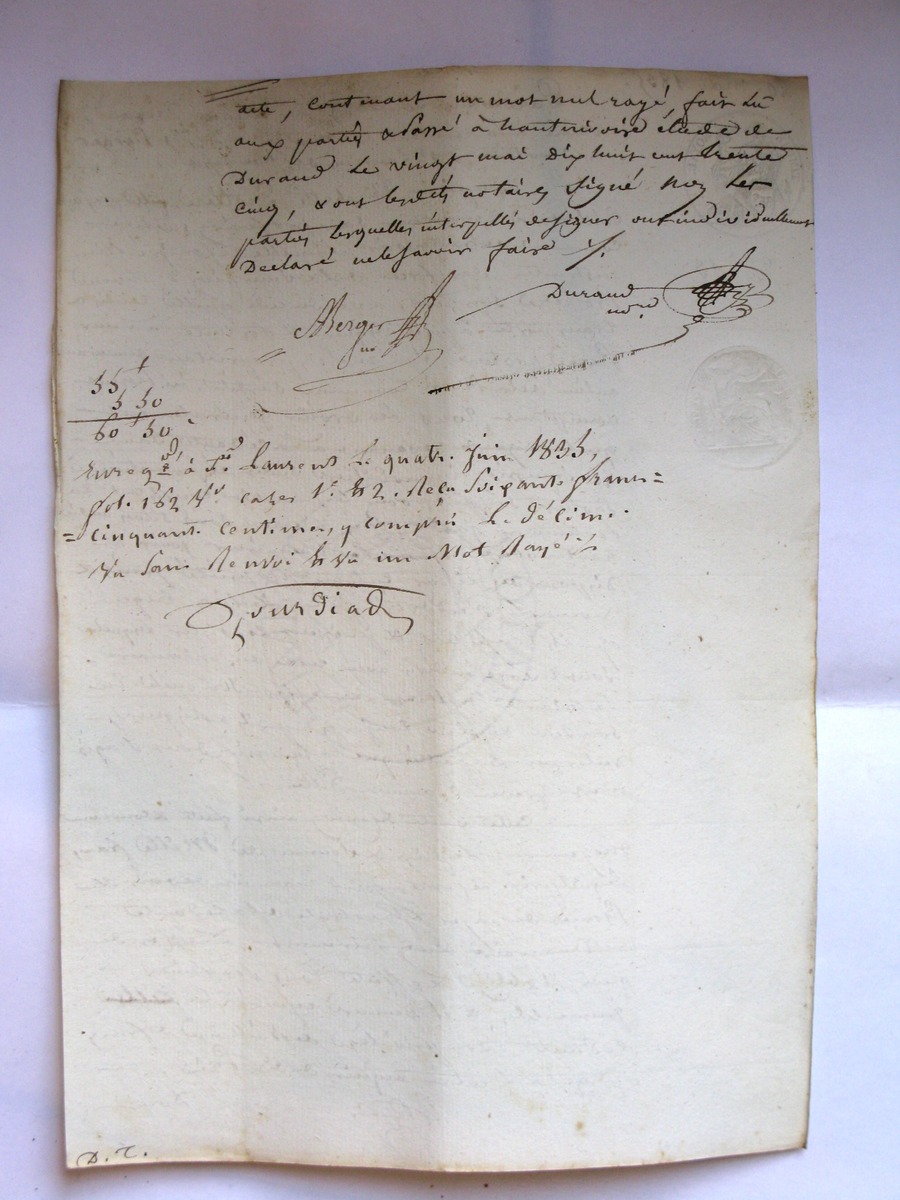 acte, contenant un mot nul rayé, fait lu
aux parties & Passé à hauterivoire étude de
Durand Le vingt mai dix huit cent trente
cinq, & ont lesdits notaires signé non les
parties lesquelles interpellés de signer ont individuellement
Declaré ne le savoir faire ./.
Durand
nore
Berger
nre
55 f
5 50
60 f 50
Enregré à St Laurent Le quatre Juin 1835,
fol. 162 Vo cazes 1e & 2. Reçu Soixante francs =
= cinquante centimes, y compris Le décime.
Vu Sans Renvoi & Vu un Mot Rayé
D. T.